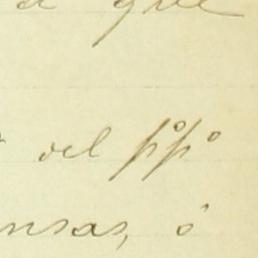 que
del p°p°
nsas, ó